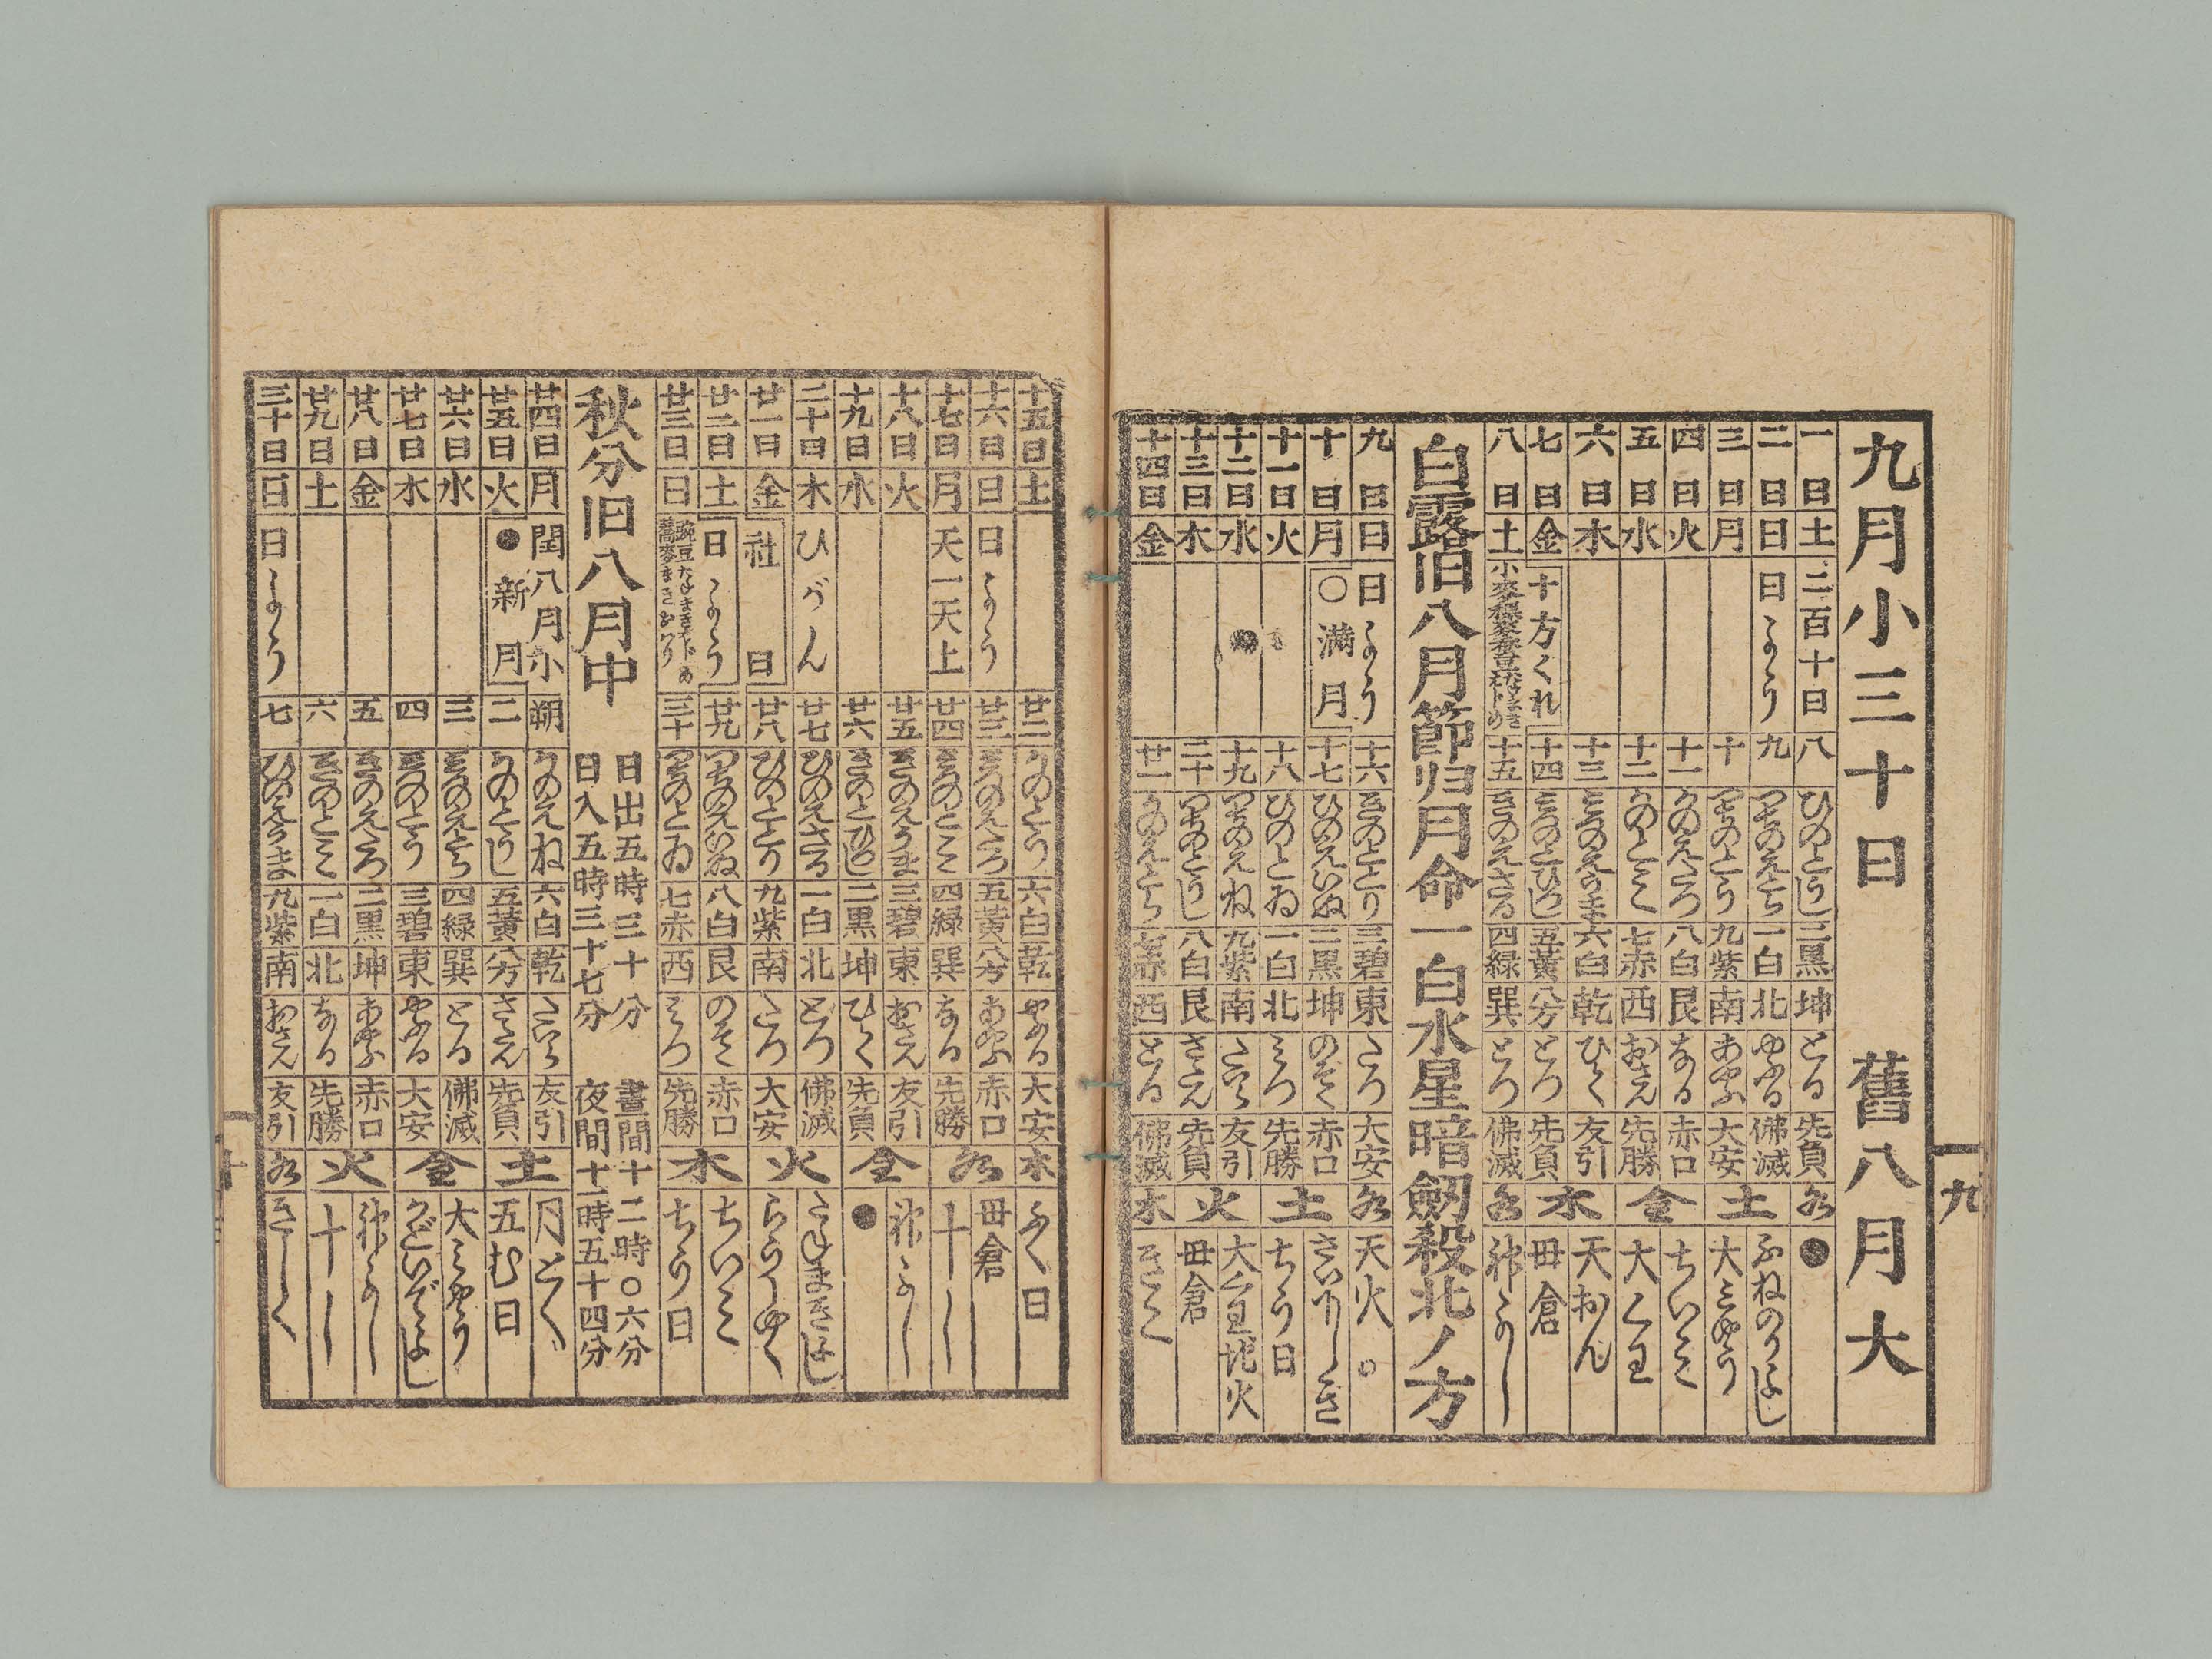 九
九月小三十日 舊八月大
一日 土 二百十日 八 ひのとうし 二黒 坤 とる 先負 水 ●
二日 日 日よう 九 つちのえとら 一白 北 やぶる 佛滅 ふねのりよし
三日 月 十 つちのとう 九紫 南 あやふ 大安 土 大ミやう
四日 火 十一 かのえたつ 八白 艮 なる 赤口 ちいミ
五日 水 十二 かのとミ 七赤 西 おさん 先勝 金 大くわ
六日 木 十三 ミつのえうま 六白 乾 ひらく 友引 天おん
七日 金 十方くれ 十四 ミつのとひつし 五黄 八方 とつ 先負 木 母倉
八日 土 十五 きのえさる 四緑 巽 とつ 佛滅 水 神よし
白露旧八月節归月命一白水星暗劔殺北ノ方
九日 日 日よう 十六 きのととり 三碧 東 たつ 大安 水 天火
十日 月 〇満月 十七 ひのえいぬ 二黒 坤 のぞく 赤口 さいけしき
十一日 火 十八 ひのとゐ 一白 北 ミつ 先勝 土 ちう日
十二日 水 十九 つちのえね 九紫 南 たいら 友引 大くわ地火
十三日 木 二十 つちのとうし 八白 艮 さたん 先負 火 母倉
十四日 金 廿一 かのえとら 七赤 西 とる 佛滅 木 きこく
十五日 土 廿二 かのとう 六白 乾 やぶる 大安 木 ふく日
十六日 日 日よう 廿三 ミつのえたつ 五黄 八方 あやふ 赤口 母倉
十七日 月 天一天上 廿四 ミつのとミ 四緑 巽 なる 先勝 水 十し
十八日 火 廿五 きのえうま 三碧 東 おさん 友引 神よし
十九日 水 廿六 きのとひつし 二黒 坤 ひらく 先負 金 ●
二十日 木 ひがん 廿七 ひのえさる 一白 北 とつ 佛滅 たねまきよし
廿一日 金 社日 廿八 ひのととり 九紫 南 たつ 大安 火 らうしやく
廿二日 土 日よう 廿九 つちのえいぬ 八白 艮 のぞく 赤口 ちいミ
廿三日 日 三十 つちのとゐ 七赤 西 ミつ 先勝 木 ちう日
秋分旧八月中 日出五時三十分 晝間十二時〇六分
日入五時三十七分 夜間十一時五十四分
廿四日 月 閏八月小 朔 かのえね 六白 乾 たいら 友引 月とく
廿五日 火 ●新月 二 かのとうし 五黄 八方 さたん 先負 土 五む日
廿六日 水 三 ミつのえとら 四緑 巽 とる 佛滅 大ミやう
廿七日 木 四 ミつのとう 三碧 東 やぶる 大安 金 かどいでよし
廿八日 金 五 きのえたつ 二黒 坤 あやふ 赤口 神よし
廿九日 土 六 きのとミ 一白 北 なる 先勝 火 十し
三十日 日 日よう 七 ひのえうま 九紫 南 おさん 友引 水 きこく
十